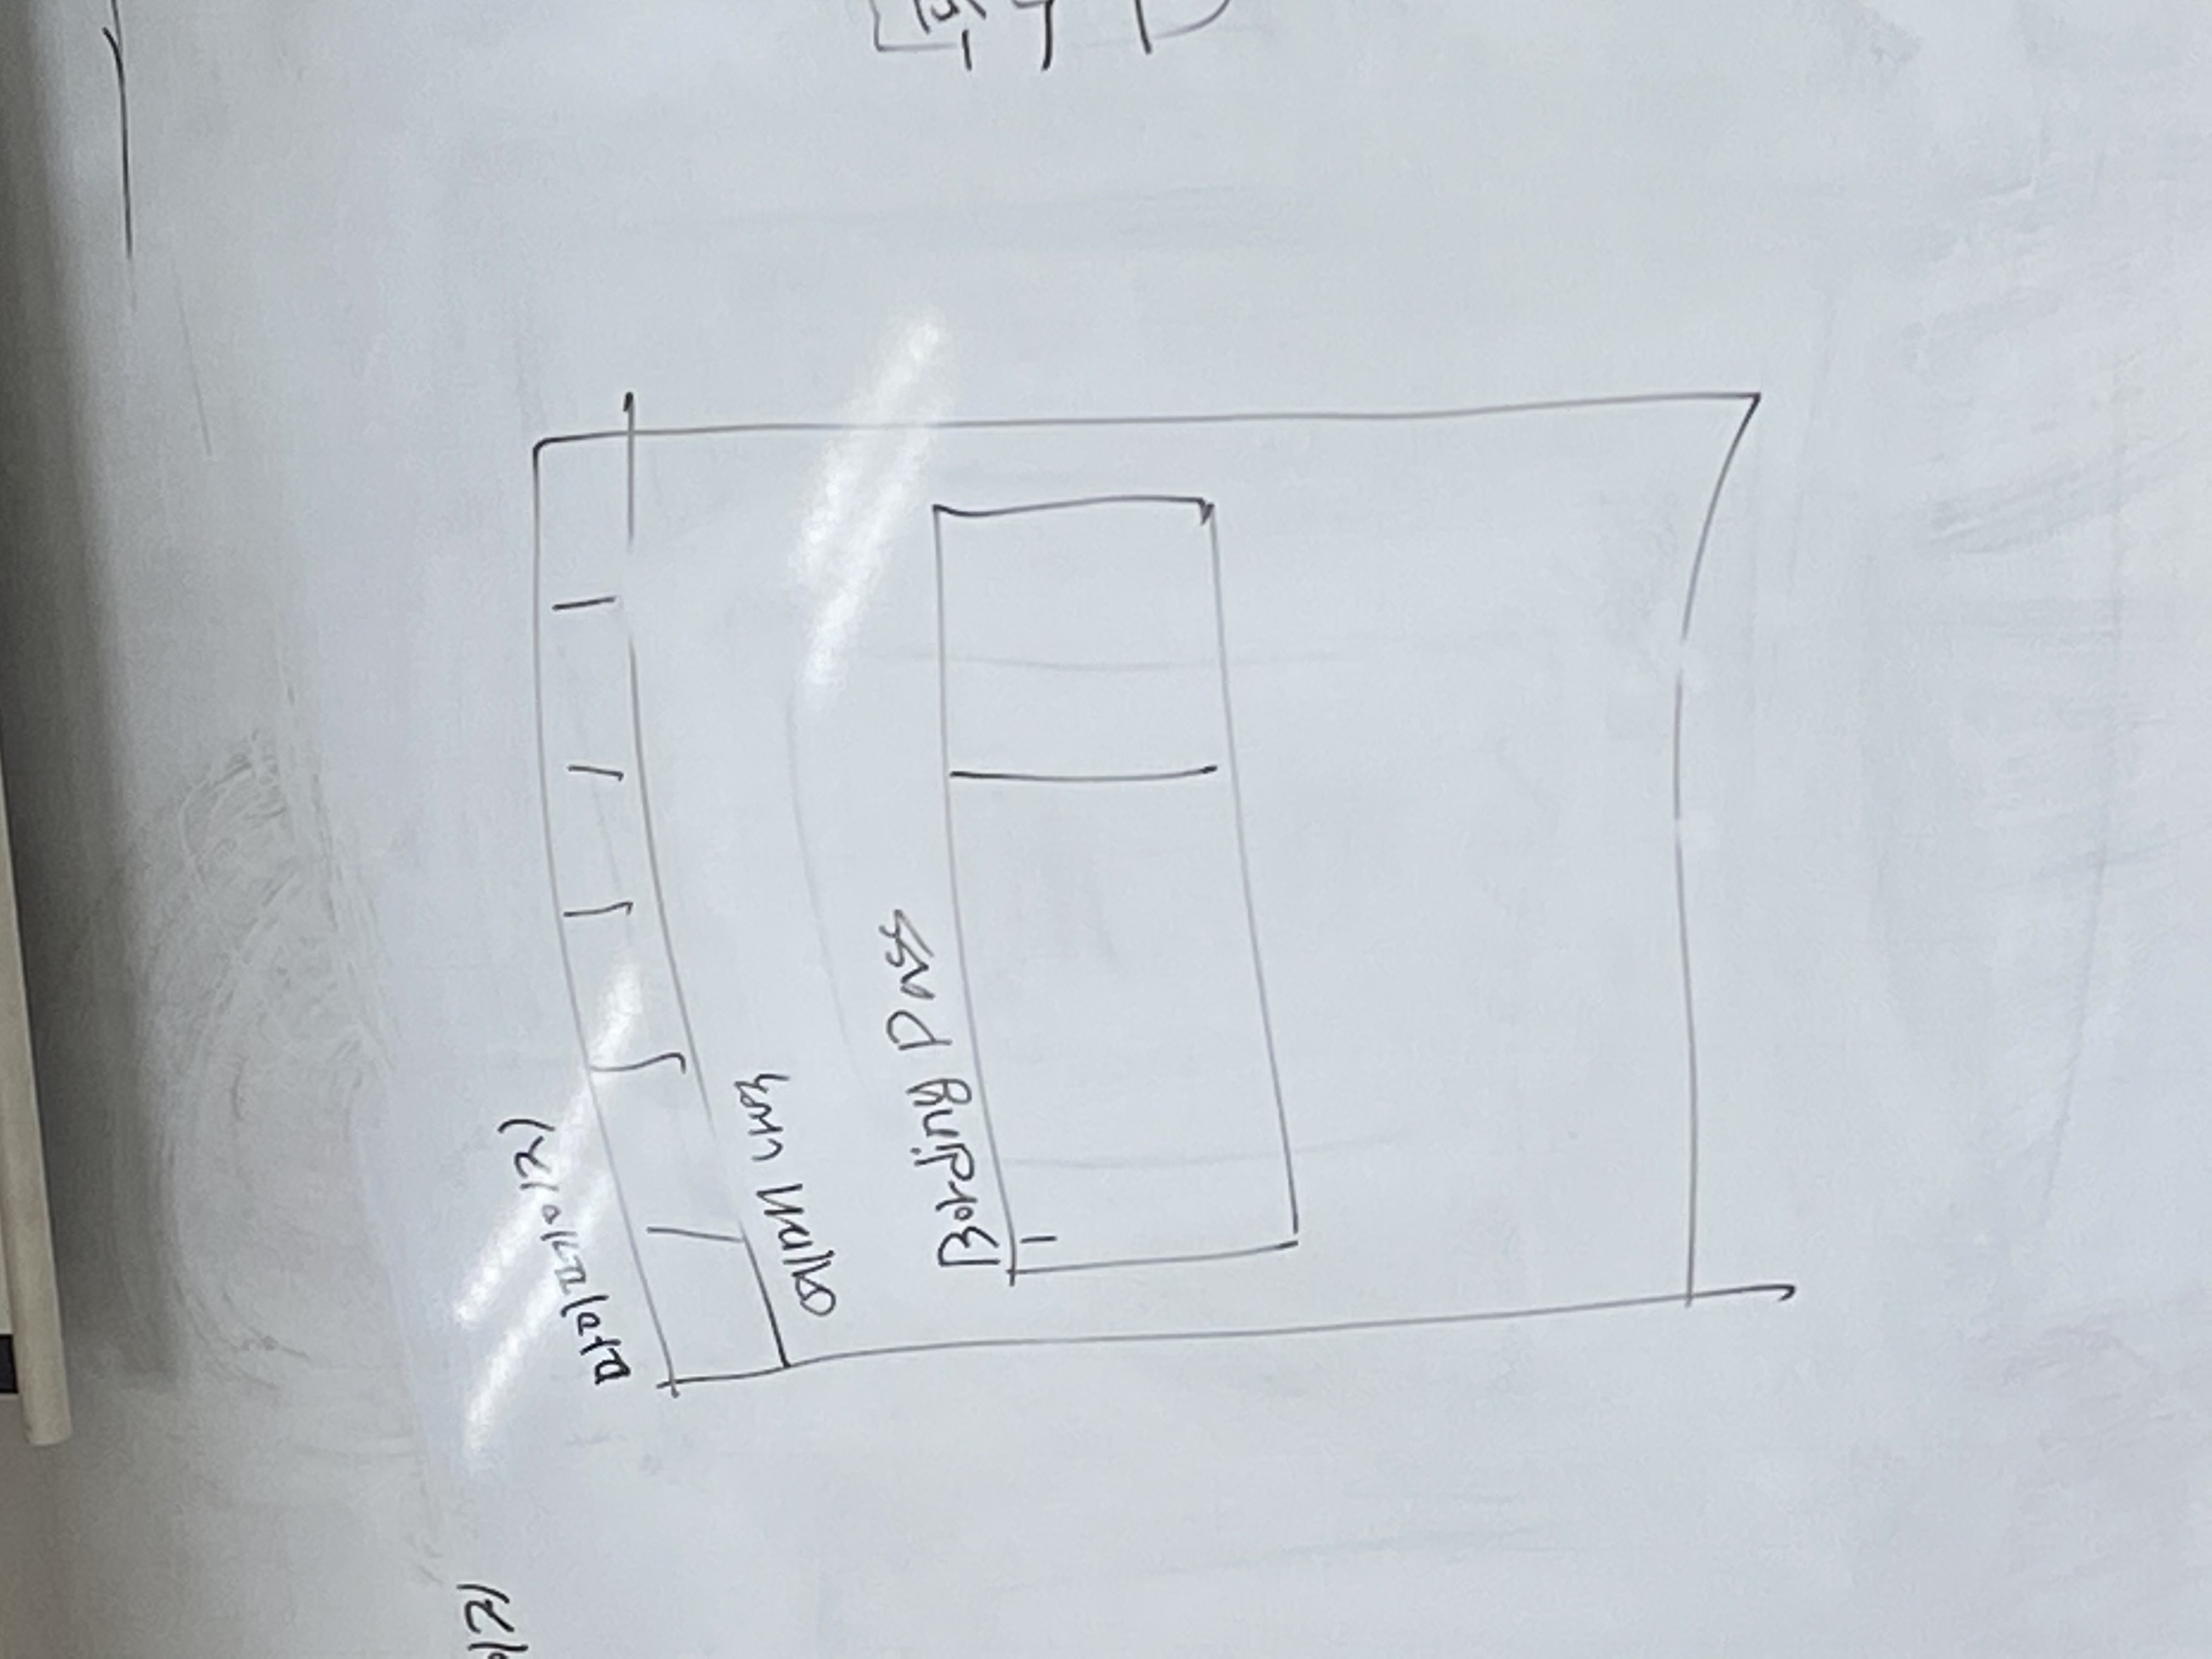 이지
마이페이지
예매 내역
Bording Pass